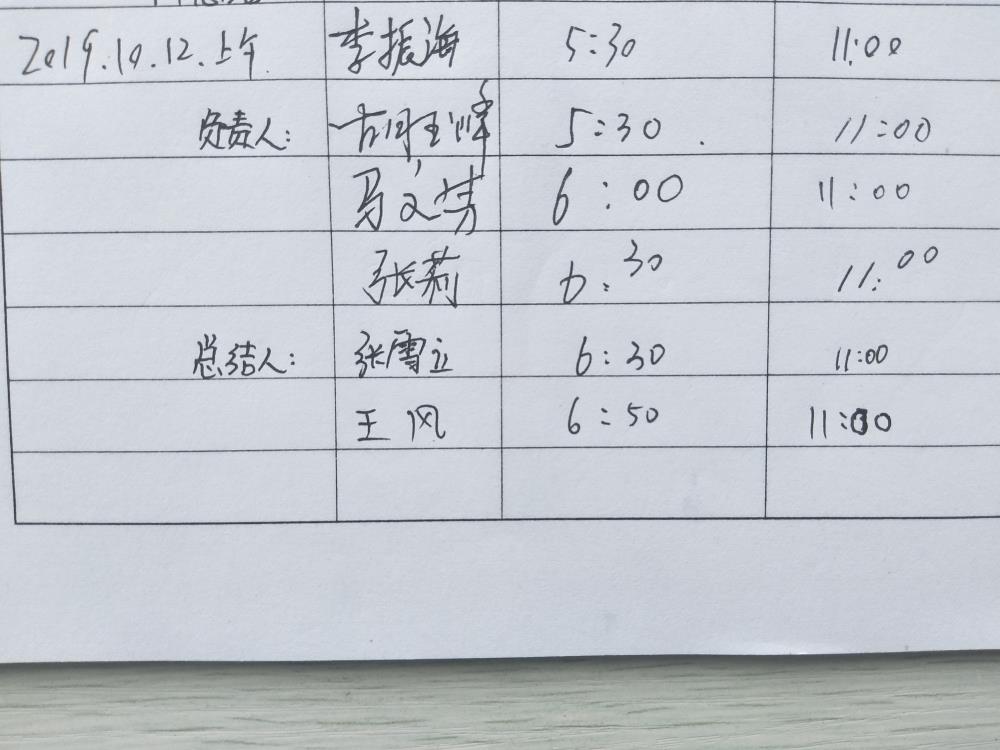 2019.10.12.上午 李振海 5:30 11:00
负责人: 胡玉峰 5:30 11:00
马文倩 6:00 11:00
张莉 6:30 11:00
总结人: 张雪立 6:30 11:00
王风 6:50 11:00